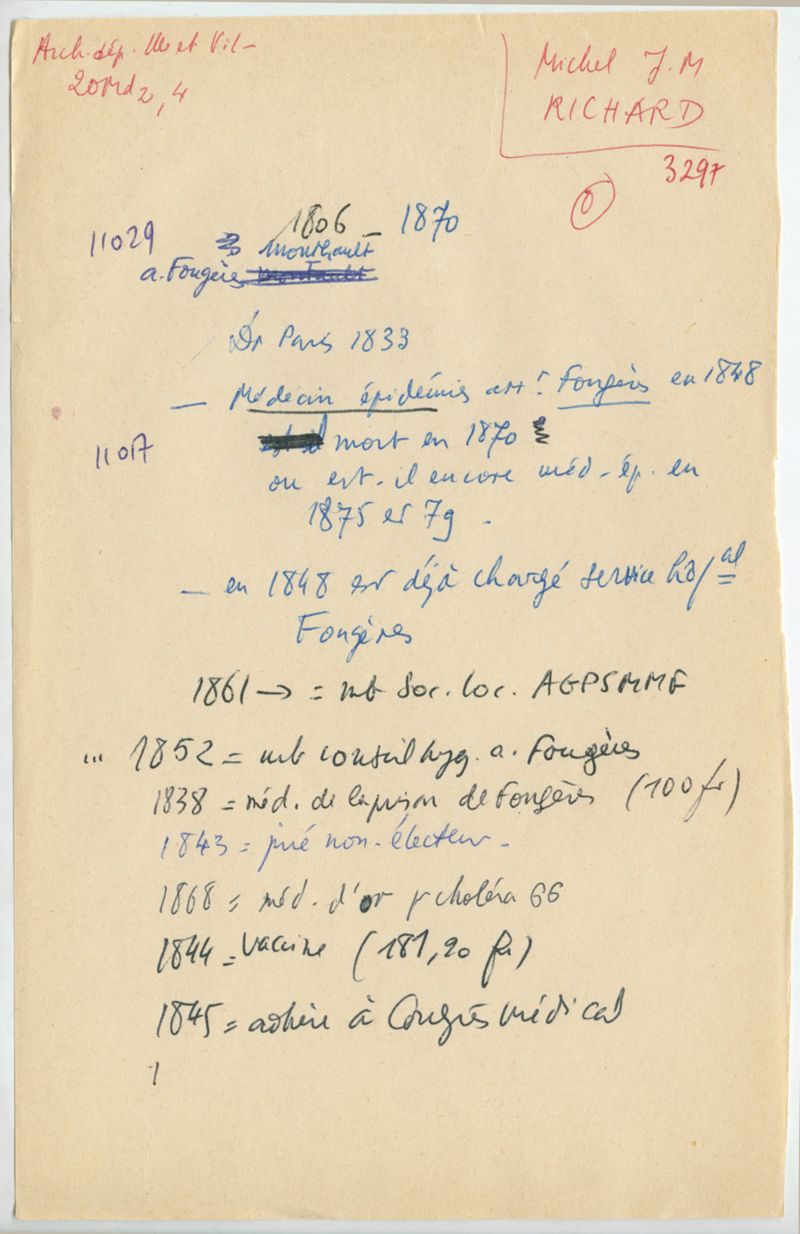 Arch. dép. Ille et Vil-
20Md2, 4
Michel J.M
RICHARD
3297
0
1806 - 1870
11029
Monthault
a. Fougères
Dr Paris 1833
— Médecin épidémies arrt Fougères en 1848
mort en 1870
11017
ou est-il encore méd-ép. en
1875 et 79.
— en 1848 est déjà chargé service hô/al
Fougères
1861 → = mb Soc. loc. AGPSMMF
... 1852 = mb conseil hyg. a. Fougères
1838 = méd. de la prison de Fougères (100 fr)
1843 = juré non-électeur -
1868 = méd. d'or pr choléra 66
1844 = vaccine (181,20 fr)
1845 = adhère à Congrès médical
1